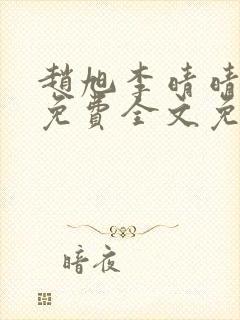 趙旭李晴晴
免費全文免
暗夜